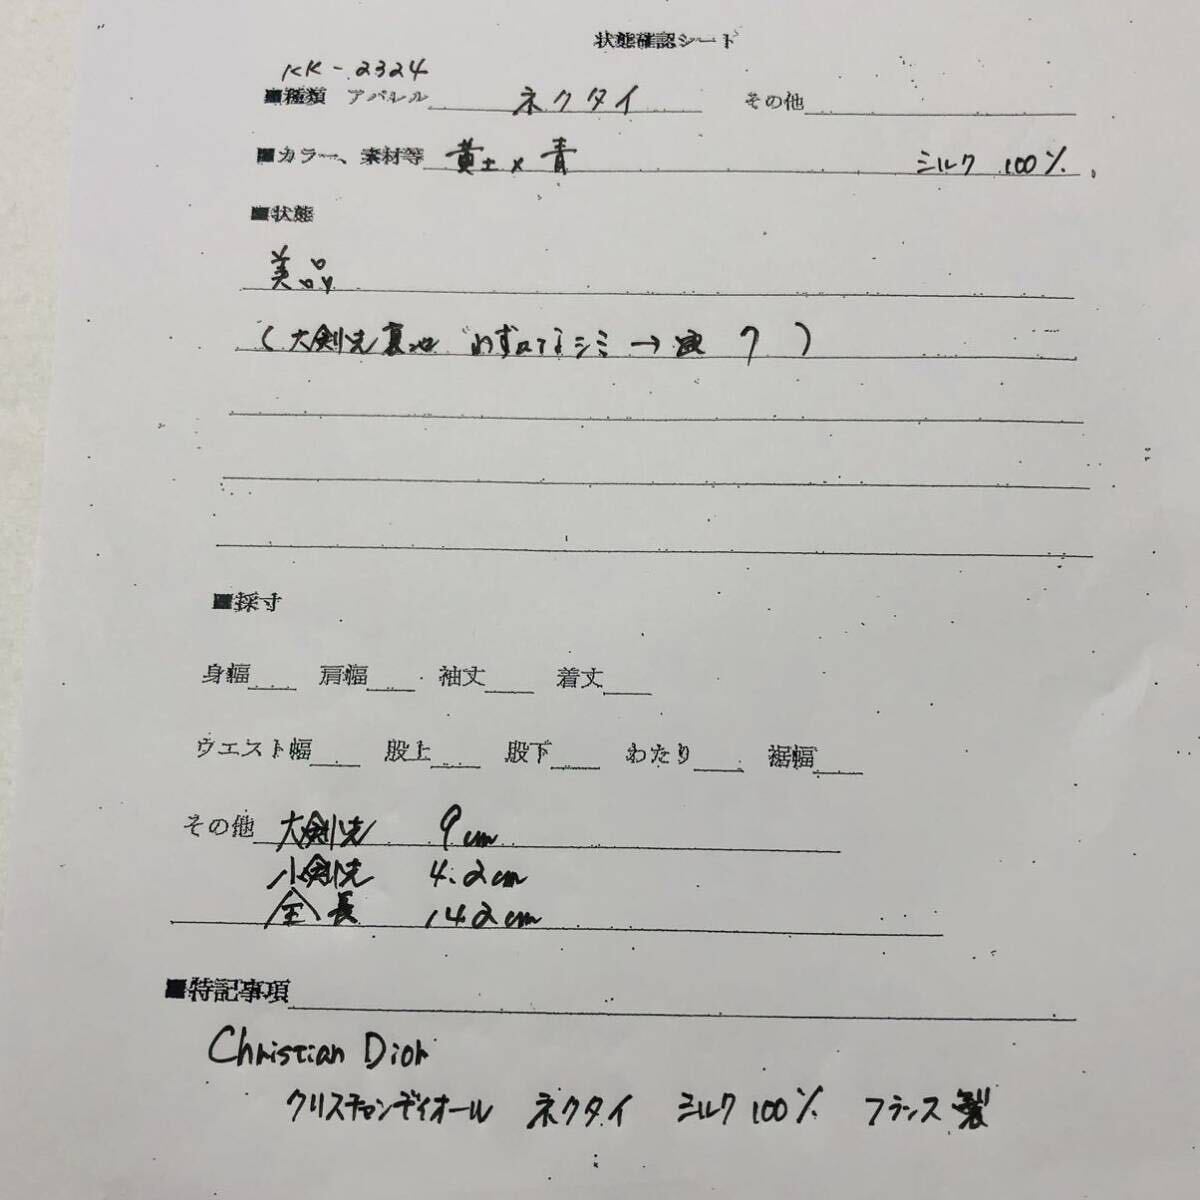 状態確認シート
KK-2324
■種類 アパレル ネクタイ その他
■カラー、素材等 黄土×青 シルク 100%
■状態
美品
(大剣先裏地 わずかなシミ→ )
■採寸
身幅 肩幅 袖丈 着丈
ウエスト幅 股上 股下 わたり 裾幅
その他 大剣先 9cm
小剣先 4.2cm
全長 142cm
■特記事項
Christian Dior
クリスチャンディオール ネクタイ シルク100% フランス製